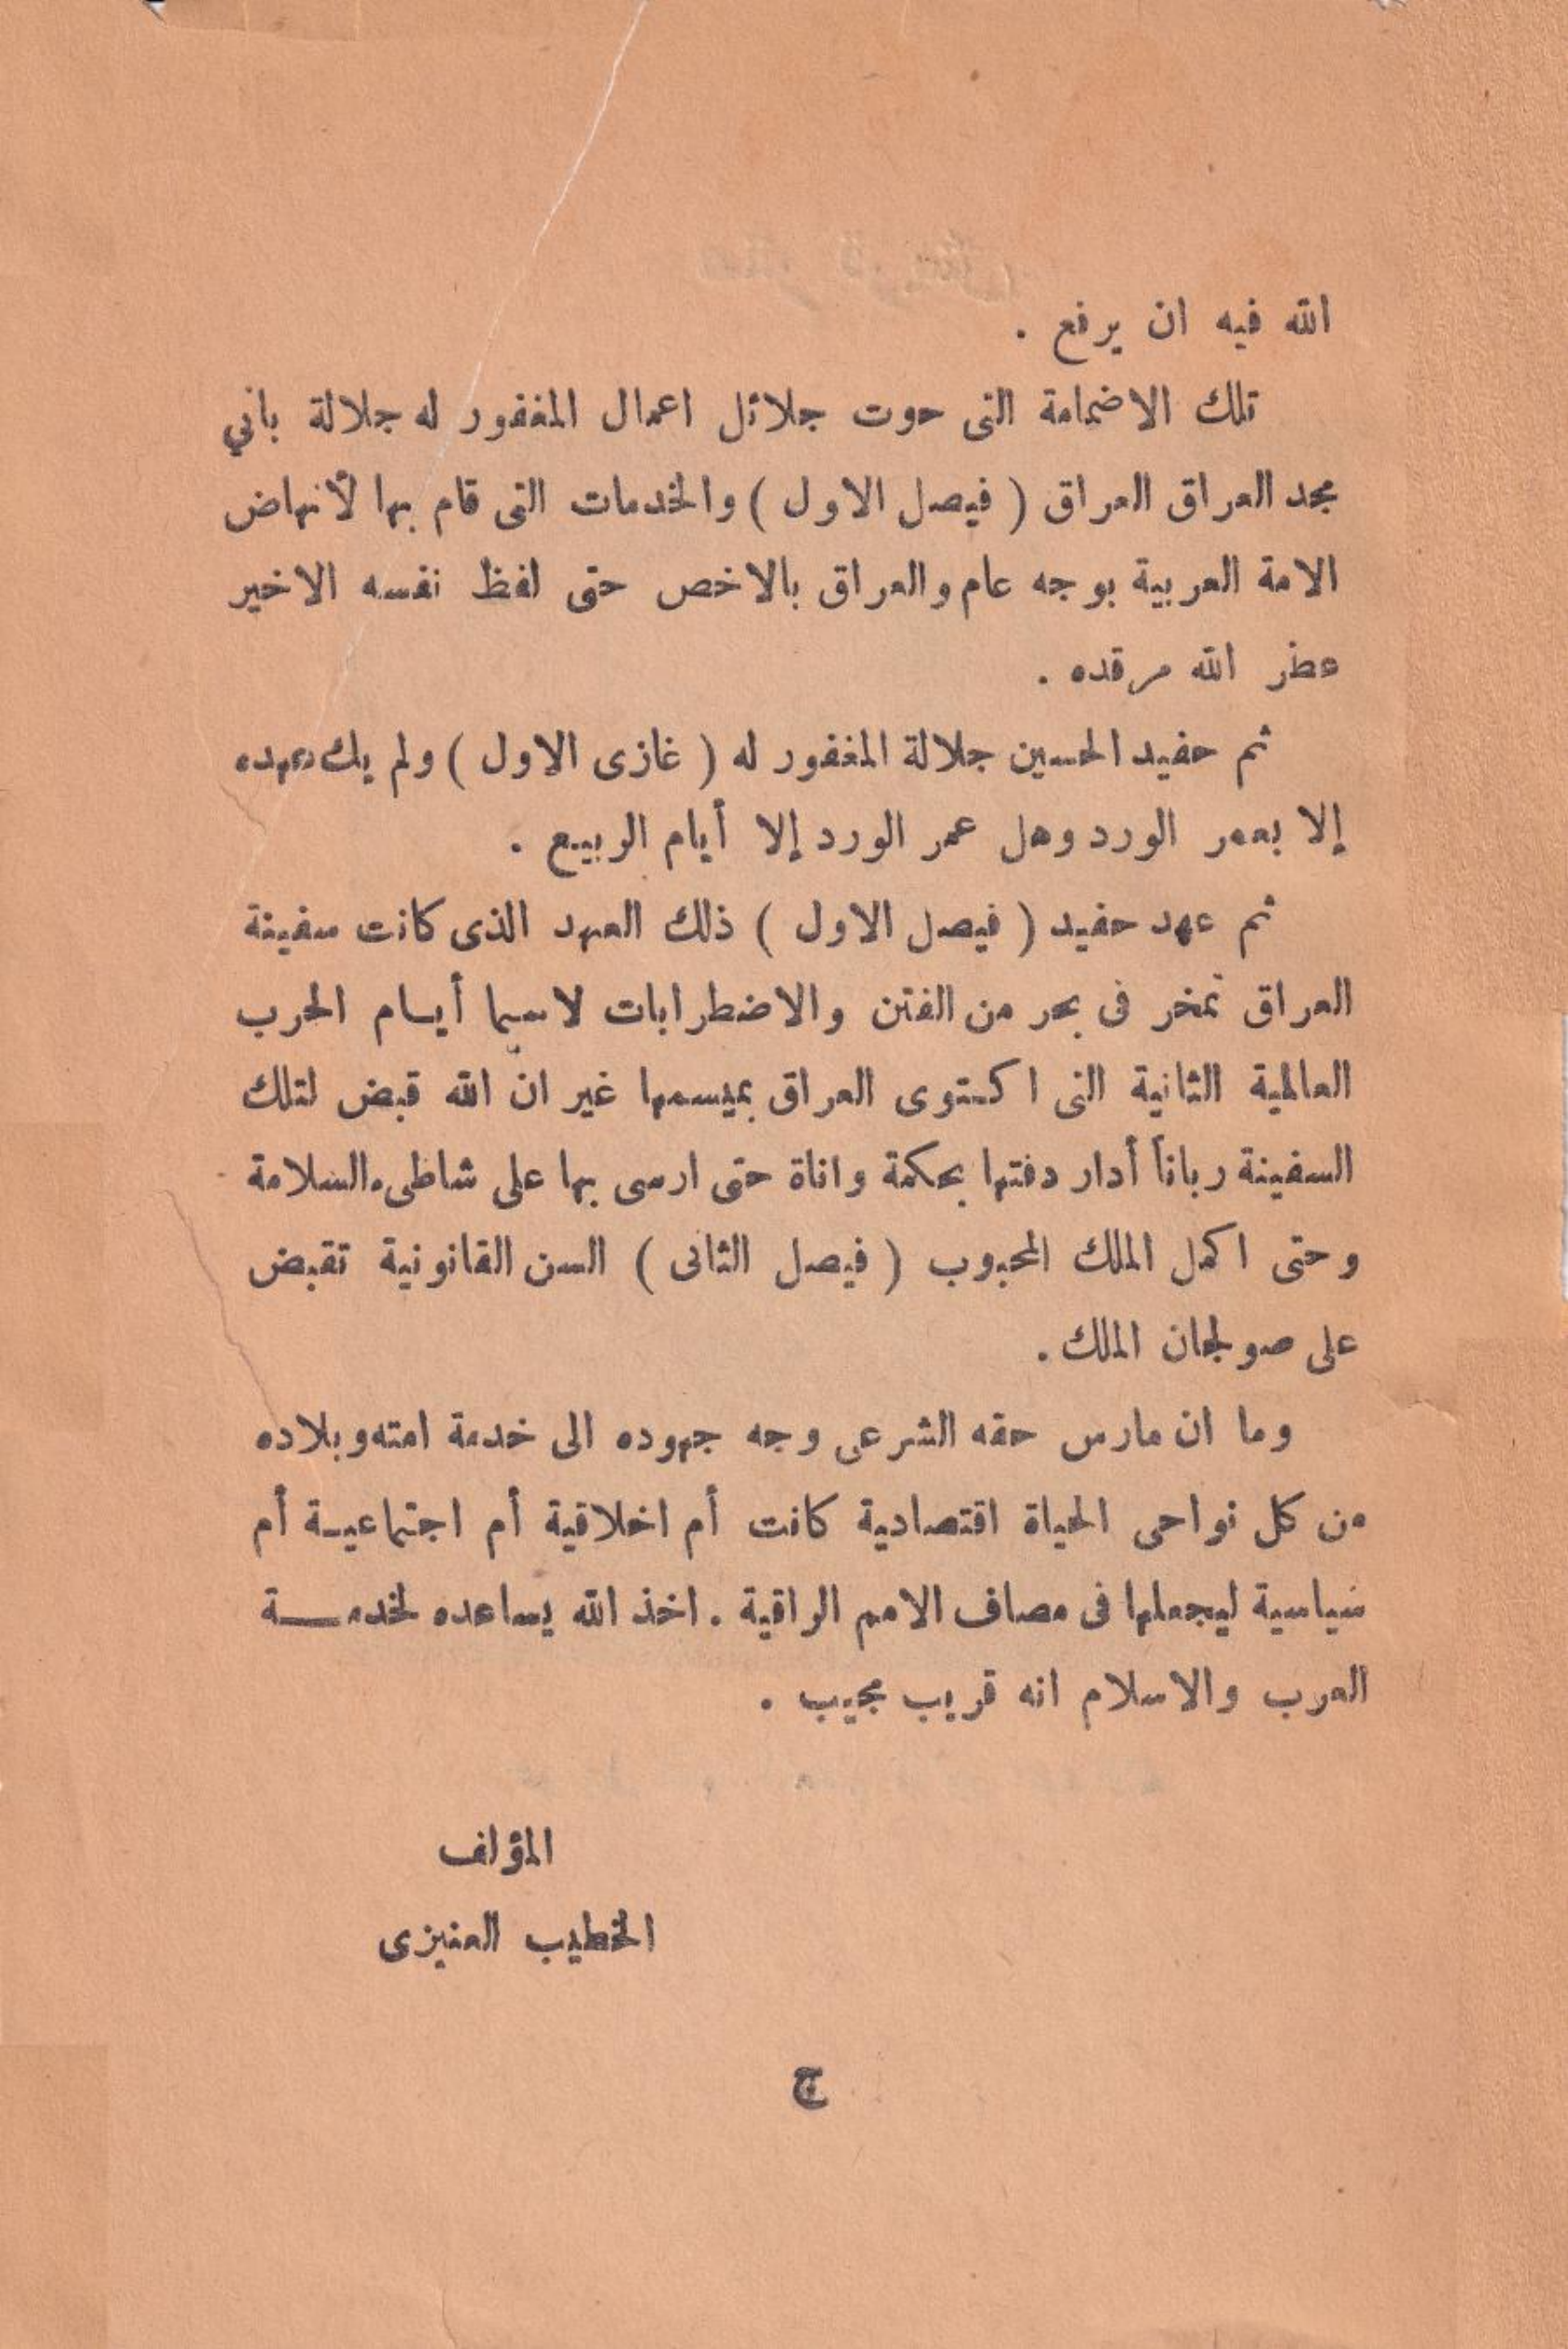 الله فيه ان يرفع .
تلك الاضمامة التى حوت جلائل اعمال المغفور له جلالة باني
مجد العراق العراق ( فيصل الاول ) والخدمات التى قام بها لأنهاض
الامة العربية بوجه عام والعراق بالاخص حتى لفظ نفسه الاخير
عطر الله مرقده .
ثم حفيد الحسين جلالة المغفور له ( غازى الاول ) ولم يك عهده
إلا بعمر الورد وهل عمر الورد إلا أيام الربيع .
ثم عهد حفيد ( فيصل الاول ) ذلك العهد الذى كانت سفينة
العراق تمخر فى بحر من الفتن والاضطرابات لاسيما أيام الحرب
العالمية الثانية التى اكتوى العراق بميسمها غير انّ الله قبض لتلك
السفينة رباناً أدار دفتها بحكمة واناة حتى ارسى بها على شاطىء السلامة
وحتى اكمل الملك المحبوب ( فيصل الثانى ) السن القانونية تقبض
على صولجان الملك .
وما ان مارس حقه الشرعى وجه جهوده الى خدمة امته وبلاده
من كل نواحى الحياة اقتصادية كانت أم اخلاقية أم اجتماعية أم
سياسية ليجعلها فى مصاف الامم الراقية . اخذ الله يساعده لخدمة
العرب والاسلام انه قريب مجيب .
المؤلف
الخطيب العنيزى
ج